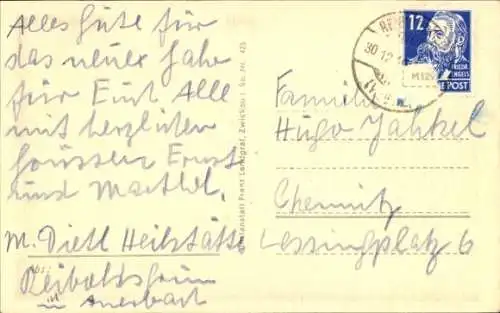 Alles Gute für
das neue Jahr
für Euch Alle
mit herzlichen
Grüssen Ernst
und Marthel.
M. Dietl Heilstätte
Abs:
Reiboldsgrün
in Auerbach
Kunstanstalt Franz Landgraf, Zwickau i. Sa. Nr. 425
12
30.12.
POST
Familie
Hugo Jahkel
Chemnitz
Lessingplatz 6